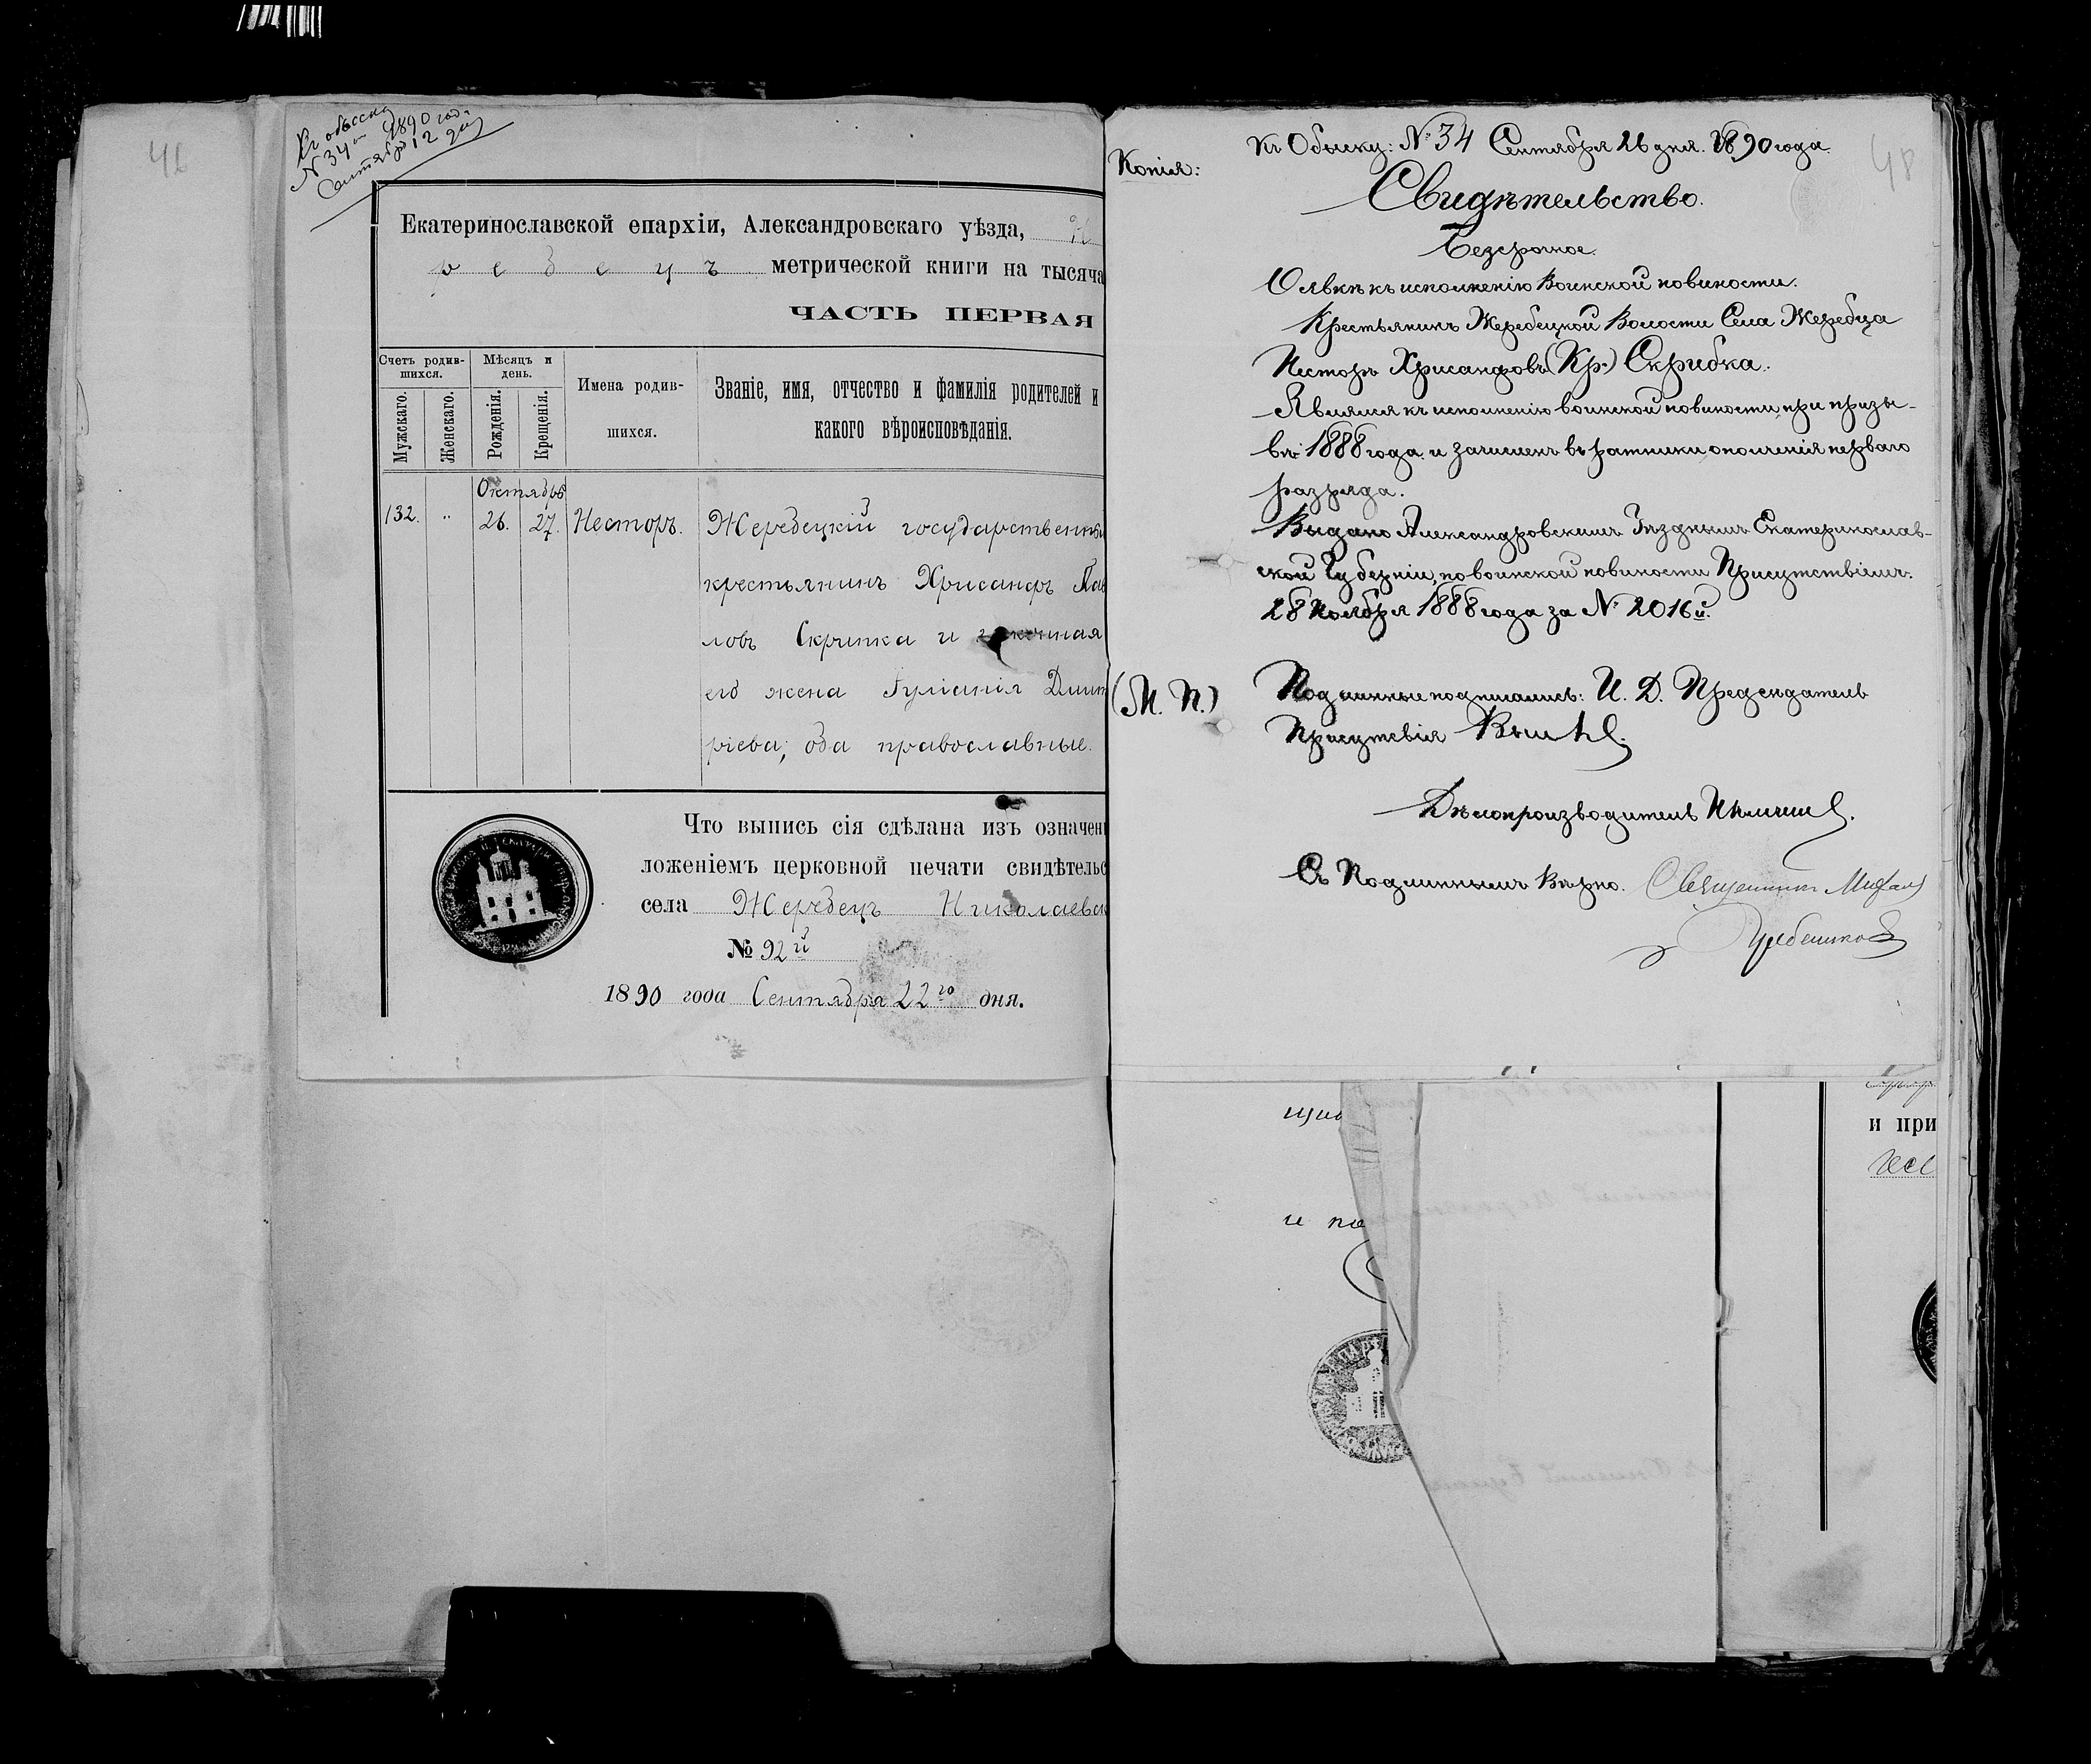 46
Къ обыску
№ 34м 1890 год.
Сентября 12 дня
Екатеринославской епархіи, Александровскаго уѣзда,
ребецъ метрической книги на тысяча
ЧАСТЬ ПЕРВАЯ
Счетъ родив-
шихся.
Мѣсяцъ и
день.
Имена родив-
шихся.
Званіе, имя, отчество и фамилія родителей и
какого вѣроисповѣданія.
Мужскаго.
Женскаго.
Рожденія.
Крещенія.
Октябрь
132. " 26. 27. Несторъ. Жеребецкій государственны
крестьянинъ Хрисанфъ Пав
ловъ Скрипка и
его жена Іуліанія Дмит
ріева; оба православные.
Что выпись сія сдѣлана изъ означен
ложеніемъ церковной печати свидѣтельс
села Жеребецъ Николаевс
№ 92й
1890 года Сентября 22го дня.
48
Къ Обыску: № 34 Сентября 26 дня. 1890 года.
Копія:
Свидѣтельство.
Безсрочное.
О явкѣ къ исполненію Воинской повиности.
Крестьянинъ Жеребецкой Волости Села Жеребца
Несторъ Хрисанфовъ (Кр.) Скрибка.
Являлся къ исполненію воинской повиности, при призы-
вѣ 1888 года. и зачисленъ въ ратники ополченія перваго
разряда.
Выдано Александровскимъ Уѣзднымъ Екатеринослав-
ской Губерніи, по воинской повиности Присутствіемъ.
28 Ноября 1888 года за № 2016й.
(М. П.) Подлинные подписались: И. Д. Предсѣдатель
Присутсвія
Дѣлопроизводитель
Съ Подлиннымъ Вѣрно. Священникъ
щи
и по
и при